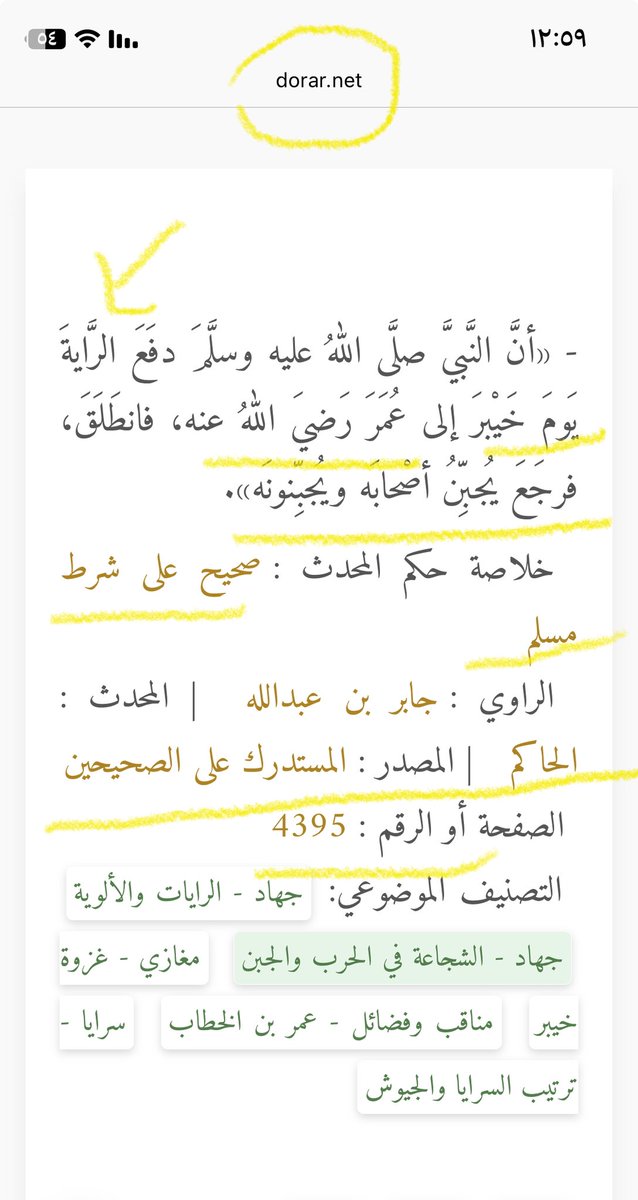 ١٢:٥٩
٥٤
dorar.net
- «أنَّ النَّبيَّ صلَّى اللهُ عليه وسلَّمَ دفَعَ الرَّايةَ
يَومَ خَيْبرَ إلى عُمَرَ رَضيَ اللهُ عنه، فانطَلَقَ،
فرجَعَ يُجبِّنُ أصْحابَه ويُجبِّنونَه».
خلاصة حكم المحدث : صحيح على شرط
مسلم
الراوي : جابر بن عبدالله | المحدث :
الحاكم | المصدر : المستدرك على الصحيحين
الصفحة أو الرقم : 4395
التصنيف الموضوعي: جهاد - الرايات والألوية
جهاد - الشجاعة في الحرب والجبن مغازي - غزوة
خيبر مناقب وفضائل - عمر بن الخطاب سرايا -
ترتيب السرايا والجيوش